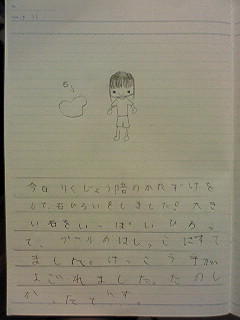 今日りくじょう階のかたずけを
して、石ひろいをしました。大き
い石をいっぱいひろっ
て、プールのはしっこにすて
ました。けっこう手が
よごれました。たのし
かったです。